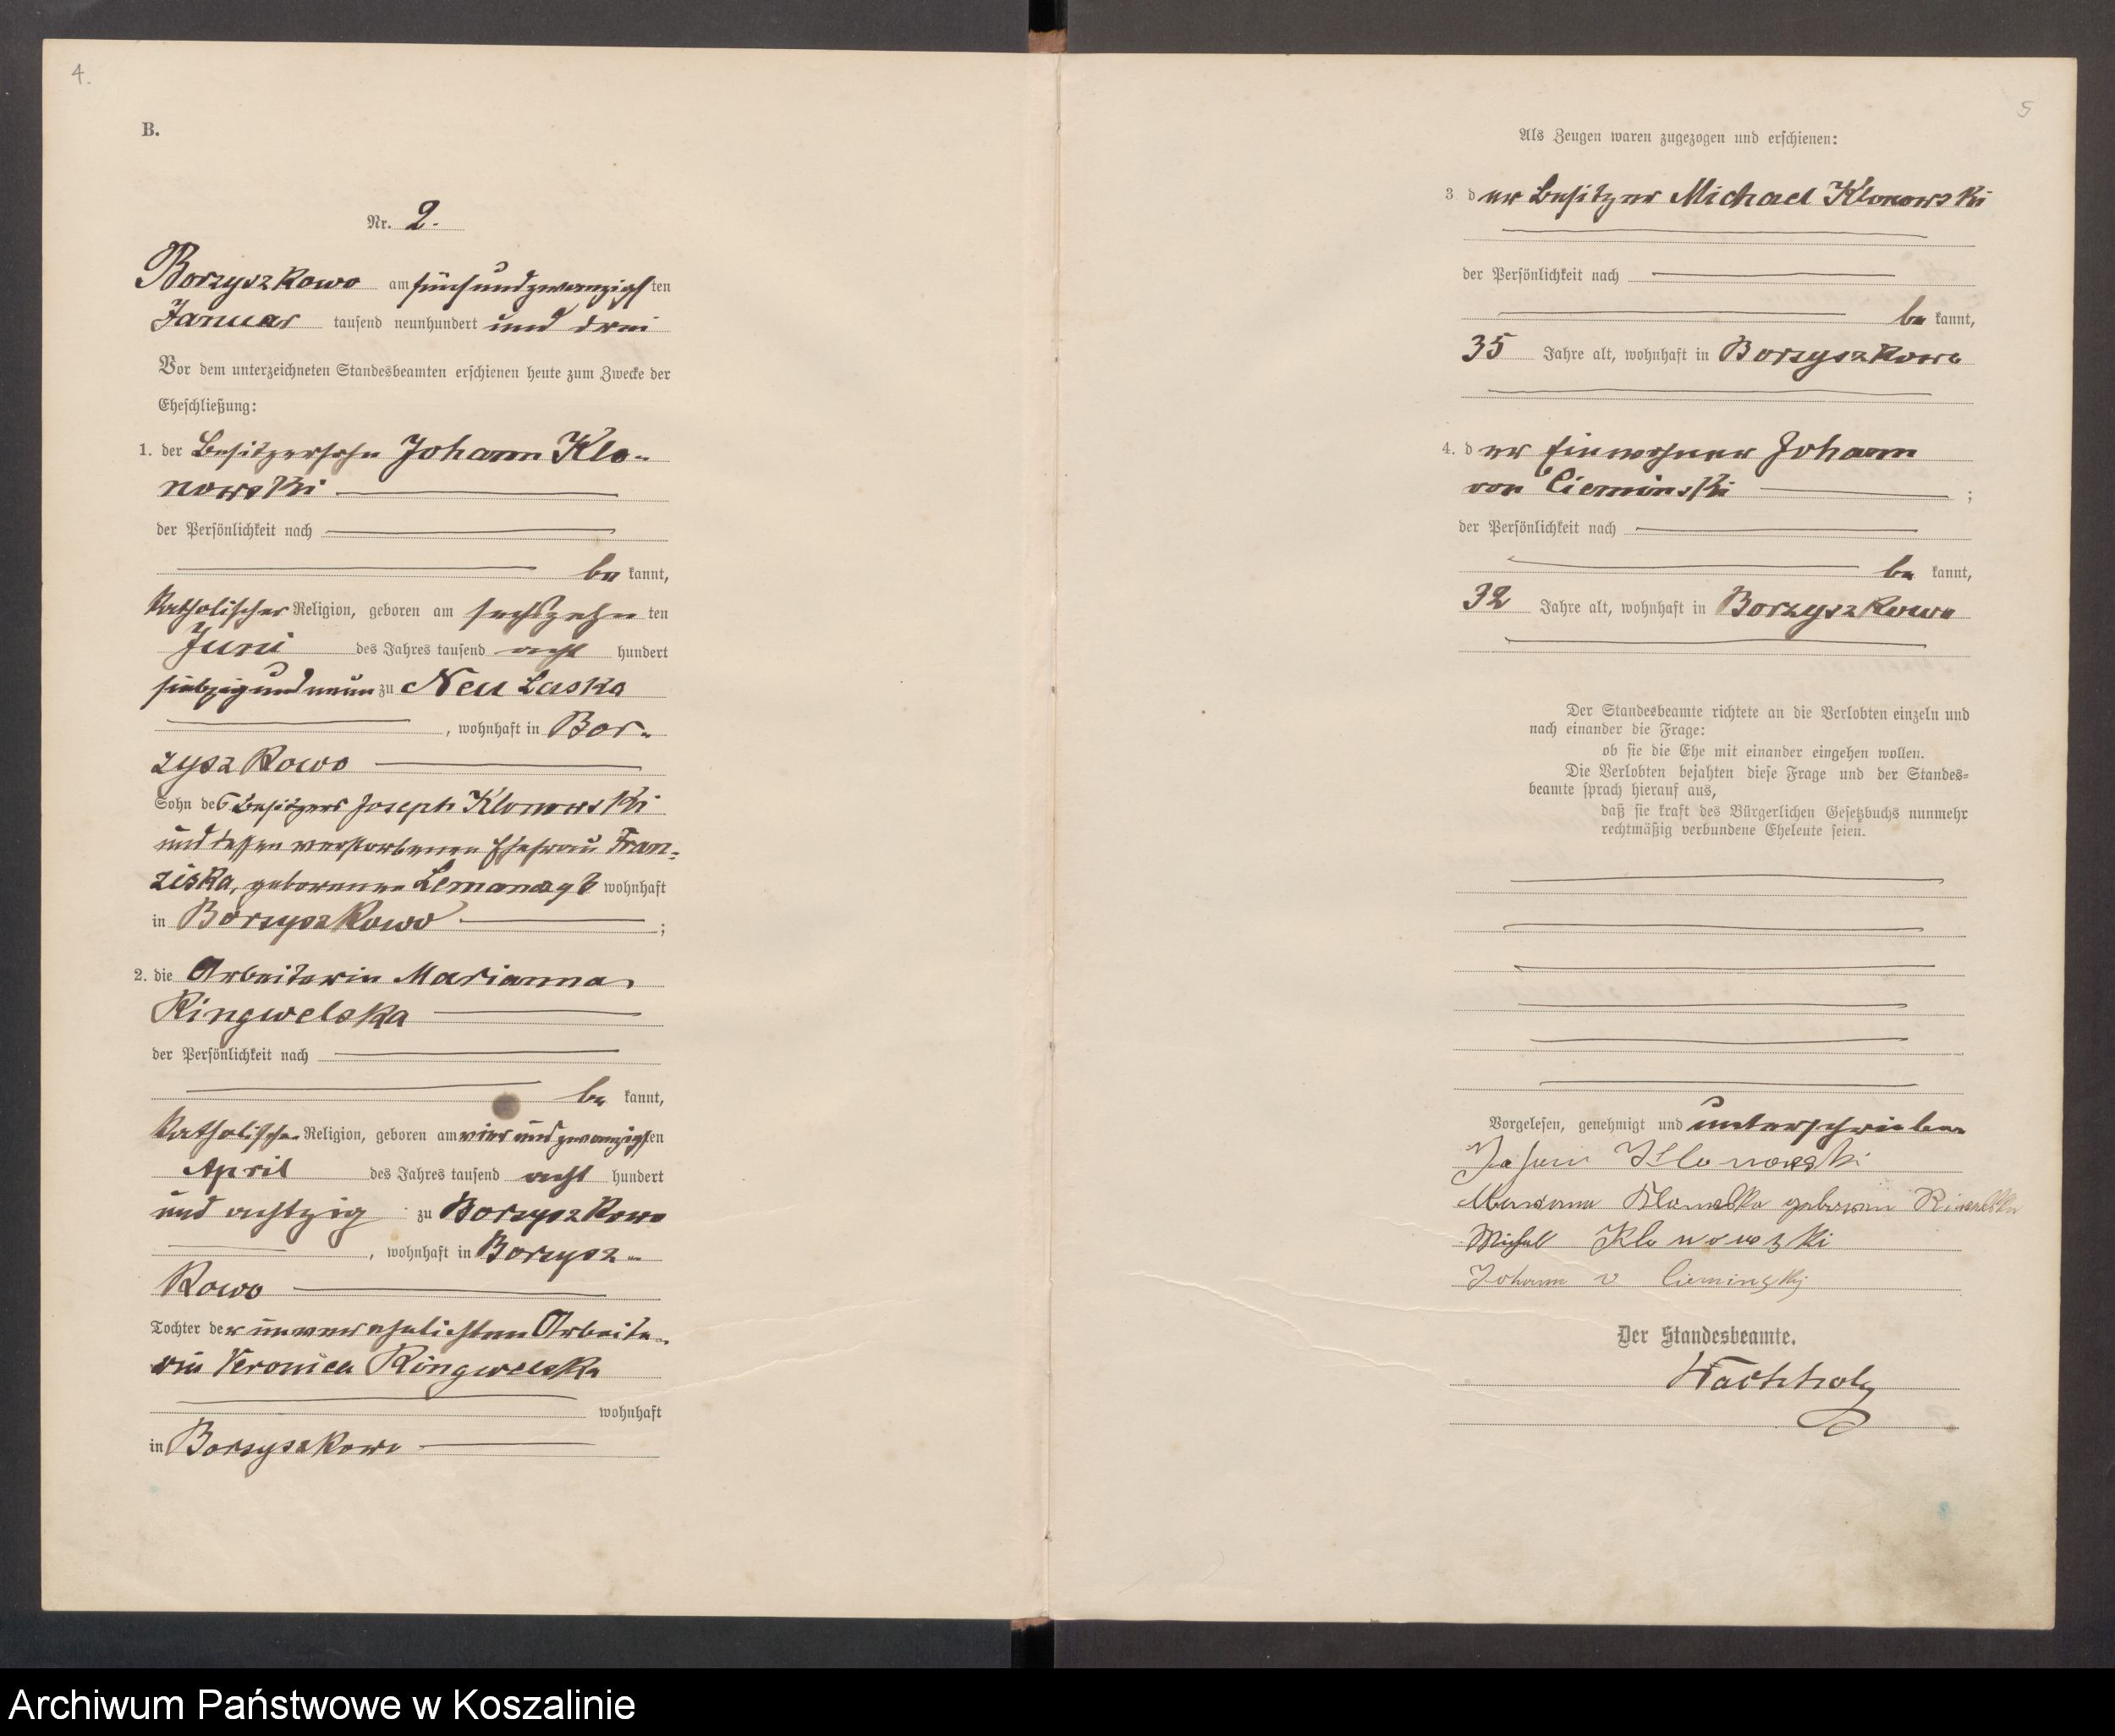 4.
B.
Nr. 2.
Borzyszkowo am fünfundzwanzigsten
Januar tausend neunhundert und drei
Vor dem unterzeichneten Standesbeamten erschienen heute zum Zwecke der
Eheschließung:
1. der Besitzersohn Johann Klo-
nowski
der Persönlichkeit nach
be kannt,
katholischer Religion, geboren am sechszehn ten
Juni des Jahres tausend acht hundert
siebzig und neun zu Neu Laska
, wohnhaft in Bor-
zyszkowo
Sohn des Besitzers Joseph Klonowski
und dessen verstorbenen Ehefrau Fran-
ziska, geborenen wohnhaft
in Borzyszkowo ;
2. die Arbeiterin Marianna
Ringwelska
der Persönlichkeit nach
be kannt,
katholischer Religion, geboren am vier und zwanzigsten
April des Jahres tausend acht hundert
und achtzig zu Borzyszkowo
, wohnhaft in Borzysz-
kowo
Tochter der unverehelichten Arbeite-
rin Veronica Ringwelska
wohnhaft
in Borzyszkowo
5
Als Zeugen waren zugezogen und erschienen:
3 der Besitzer Michael Klonowski
der Persönlichkeit nach
be kannt,
35 Jahre alt, wohnhaft in Borzyszkowo
4. der Einwohner Johann
von Cieminski ;
der Persönlichkeit nach
be kannt,
32 Jahre alt, wohnhaft in Borzyszkowo
Der Standesbeamte richtete an die Verlobten einzeln und
nach einander die Frage:
ob sie die Ehe mit einander eingehen wollen.
Die Verlobten bejahten diese Frage und der Standes=
beamte sprach hierauf aus,
daß sie kraft des Bürgerlichen Gesetzbuchs nunmehr
rechtmäßig verbundene Eheleute seien.
Vorgelesen, genehmigt und unterschrieben
Johann Klonowski
Marianna geboren
Michael Klonowski
Johann v Cieminskj
Der Standesbeamte.
Wachholz
Archiwum Państwowe w Koszalinie